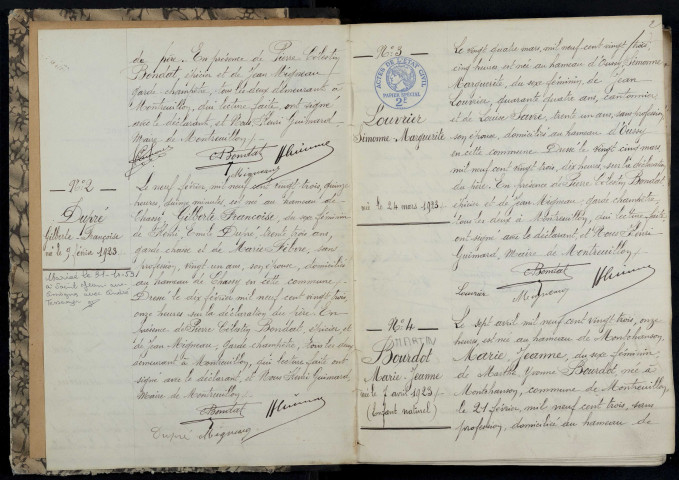 du père. En présence de Pierre Célestin
Bondat, épicier et de Jean Migneau
garde champêtre, tous les deux demeurant à
Montreuillon, qui lecture faite, ont signé
avec le déclarant, et Nous Henri Guimard
Maire de Montreuillon
Bondat
Migneau
N° 2
Dupré
Gilberte-Françoise
née le 9 février 1923
Mariée le 31-10-53
à Saint
avec André
Le neuf février, mil neuf cent vingt trois, quinze
heures, quinze minutes, est née au hameau de
Chassy, Gilberte Françoise, du sexe féminin
de Emile Dupré, trente trois ans,
garde chasse et de Marie Fèbre, sans
profession, vingt un ans, son épouse, domiciliés
au hameau de Chassy en cette commune
Dressé le dix février mil neuf cent vingt trois
onze heures sur la déclaration du père. En
présence de Pierre Célestin Bondat, épicier, et
de Jean Migneau, garde champêtre, tous les deux
demeurant à Montreuillon, qui lecture faite ont
signé avec le déclarant, et Nous Henri Guimard,
Maire de Montreuillon
Bondat
Dupré Migneau
2
N° 3
ACTES DE L'ETAT CIVIL
PAPIER SPECIAL
2F
Louvrier
Simonne-Marguerite
née le 24 mars 1923
Le vingt quatre mars, mil neuf cent vingt trois,
cinq heures, est née au hameau d'Oussy, Simonne
Marguerite, du sexe féminin, de Jean
Louvrier, quarante quatre ans, cantonnier
et de Louise Favre, trente un ans, sans profession,
son épouse, domiciliés au hameau d'Oussy
en cette commune. Dressé le vingt cinq mars,
mil neuf cent vingt trois, dix heures, sur la déclaration
du père. En présence de Pierre Célestin Bondat,
épicier et de Jean Migneau, garde champêtre
tous les deux à Montreuillon, qui lecture faite
ont signé avec le déclarant, et Nous Henri
Guimard, Maire de Montreuillon
Bondat
Louvrier Migneau
N° 4
MARTIN
Bourdot
Marie-Jeanne
née le 7 avril 1923
(Enfant naturel)
Le sept avril, mil neuf cent vingt trois, onze
heures, est née au hameau de Montchanson,
Marie Jeanne, du sexe féminin
de Marthe Yvonne Bourdot née à
Montchanson, commune de Montreuillon
le 21 février, mil neuf cent trois, sans
profession, domiciliée au hameau de